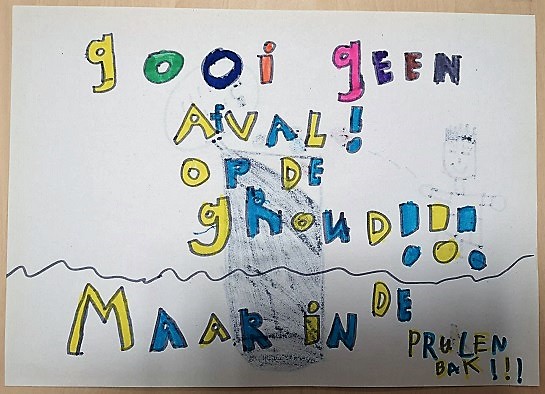 gOOi gEEN
AfVAL!
OP DE
gROUD!!!
MAAR iN DE
PRULEN
BAK!!!